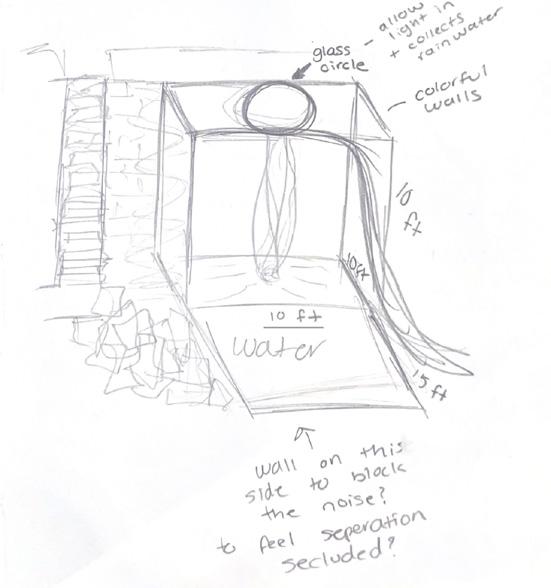 allow
light in
+ collects
rain water
glass
circle
colorful
walls
10 ft
10ft
10 ft
water
15 ft
wall on this
side to block
the noise?
to feel seperation
secluded?